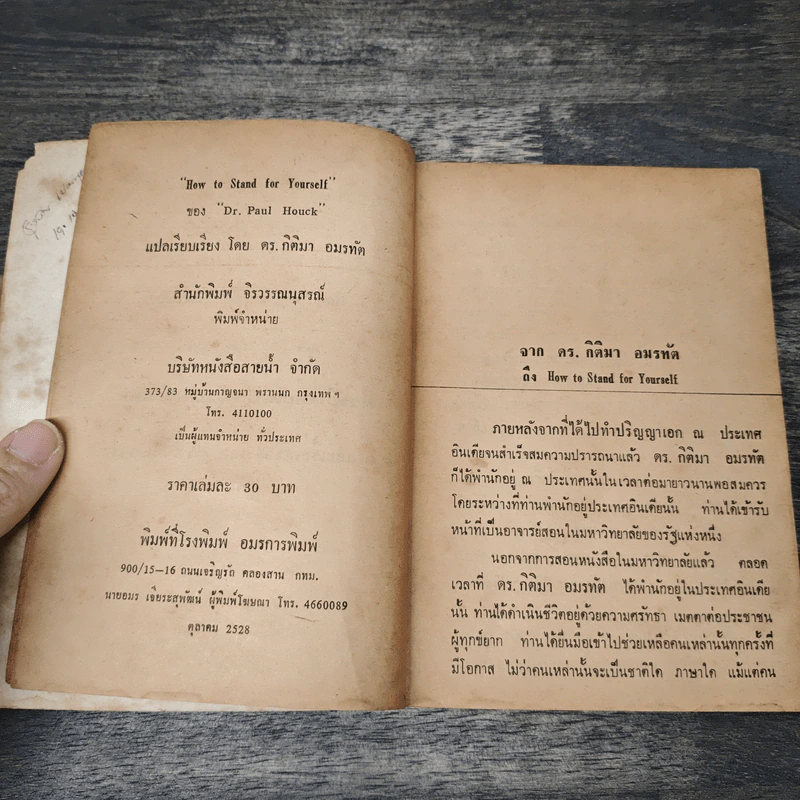 "How to Stand for Yourself"
ของ "Dr. Paul Houck"
แปลเรียบเรียง โดย ดร. กิติมา อมรทัต
สำนักพิมพ์ จิรวรรณนุสรณ์
พิมพ์จำหน่าย
บริษัทหนังสือสายน้ำ จำกัด
373/83 หมู่บ้านกาญจนา พรานนก กรุงเทพ ฯ
โทร. 4110100
เป็นผู้แทนจำหน่าย ทั่วประเทศ
ราคาเล่มละ 30 บาท
พิมพ์ที่โรงพิมพ์ อมรการพิมพ์
900/15-16 ถนนเจริญรัถ คลองสาน กทม.
นายอมร เจียระสุพัฒน์ ผู้พิมพ์โฆษณา โทร. 4660089
ตุลาคม 2528
จาก ดร. กิติมา อมรทัต
ถึง How to Stand for Yourself
ภายหลังจากที่ได้ไปทำปริญญาเอก ณ ประเทศ
อินเดียจนสำเร็จสมความปรารถนาแล้ว ดร. กิติมา อมรทัต
ก็ได้พำนักอยู่ ณ ประเทศนั้นในเวลาต่อมายาวนานพอสมควร
โดยระหว่างที่ท่านพำนักอยู่ประเทศอินเดียนั้น ท่านได้เข้ารับ
หน้าที่เป็นอาจารย์สอนในมหาวิทยาลัยของรัฐแห่งหนึ่ง
นอกจากการสอนหนังสือในมหาวิทยาลัยแล้ว ตลอด
เวลาที่ ดร. กิติมา อมรทัต ได้พำนักอยู่ในประเทศอินเดีย
นั้น ท่านได้ดำเนินชีวิตอยู่ด้วยความศรัทธา เมตตาต่อประชาชน
ผู้ทุกข์ยาก ท่านได้ยื่นมือเข้าไปช่วยเหลือคนเหล่านั้นทุกครั้งที่
มีโอกาส ไม่ว่าคนเหล่านั้นจะเป็นชาติใด ภาษาใด แม้แต่คน